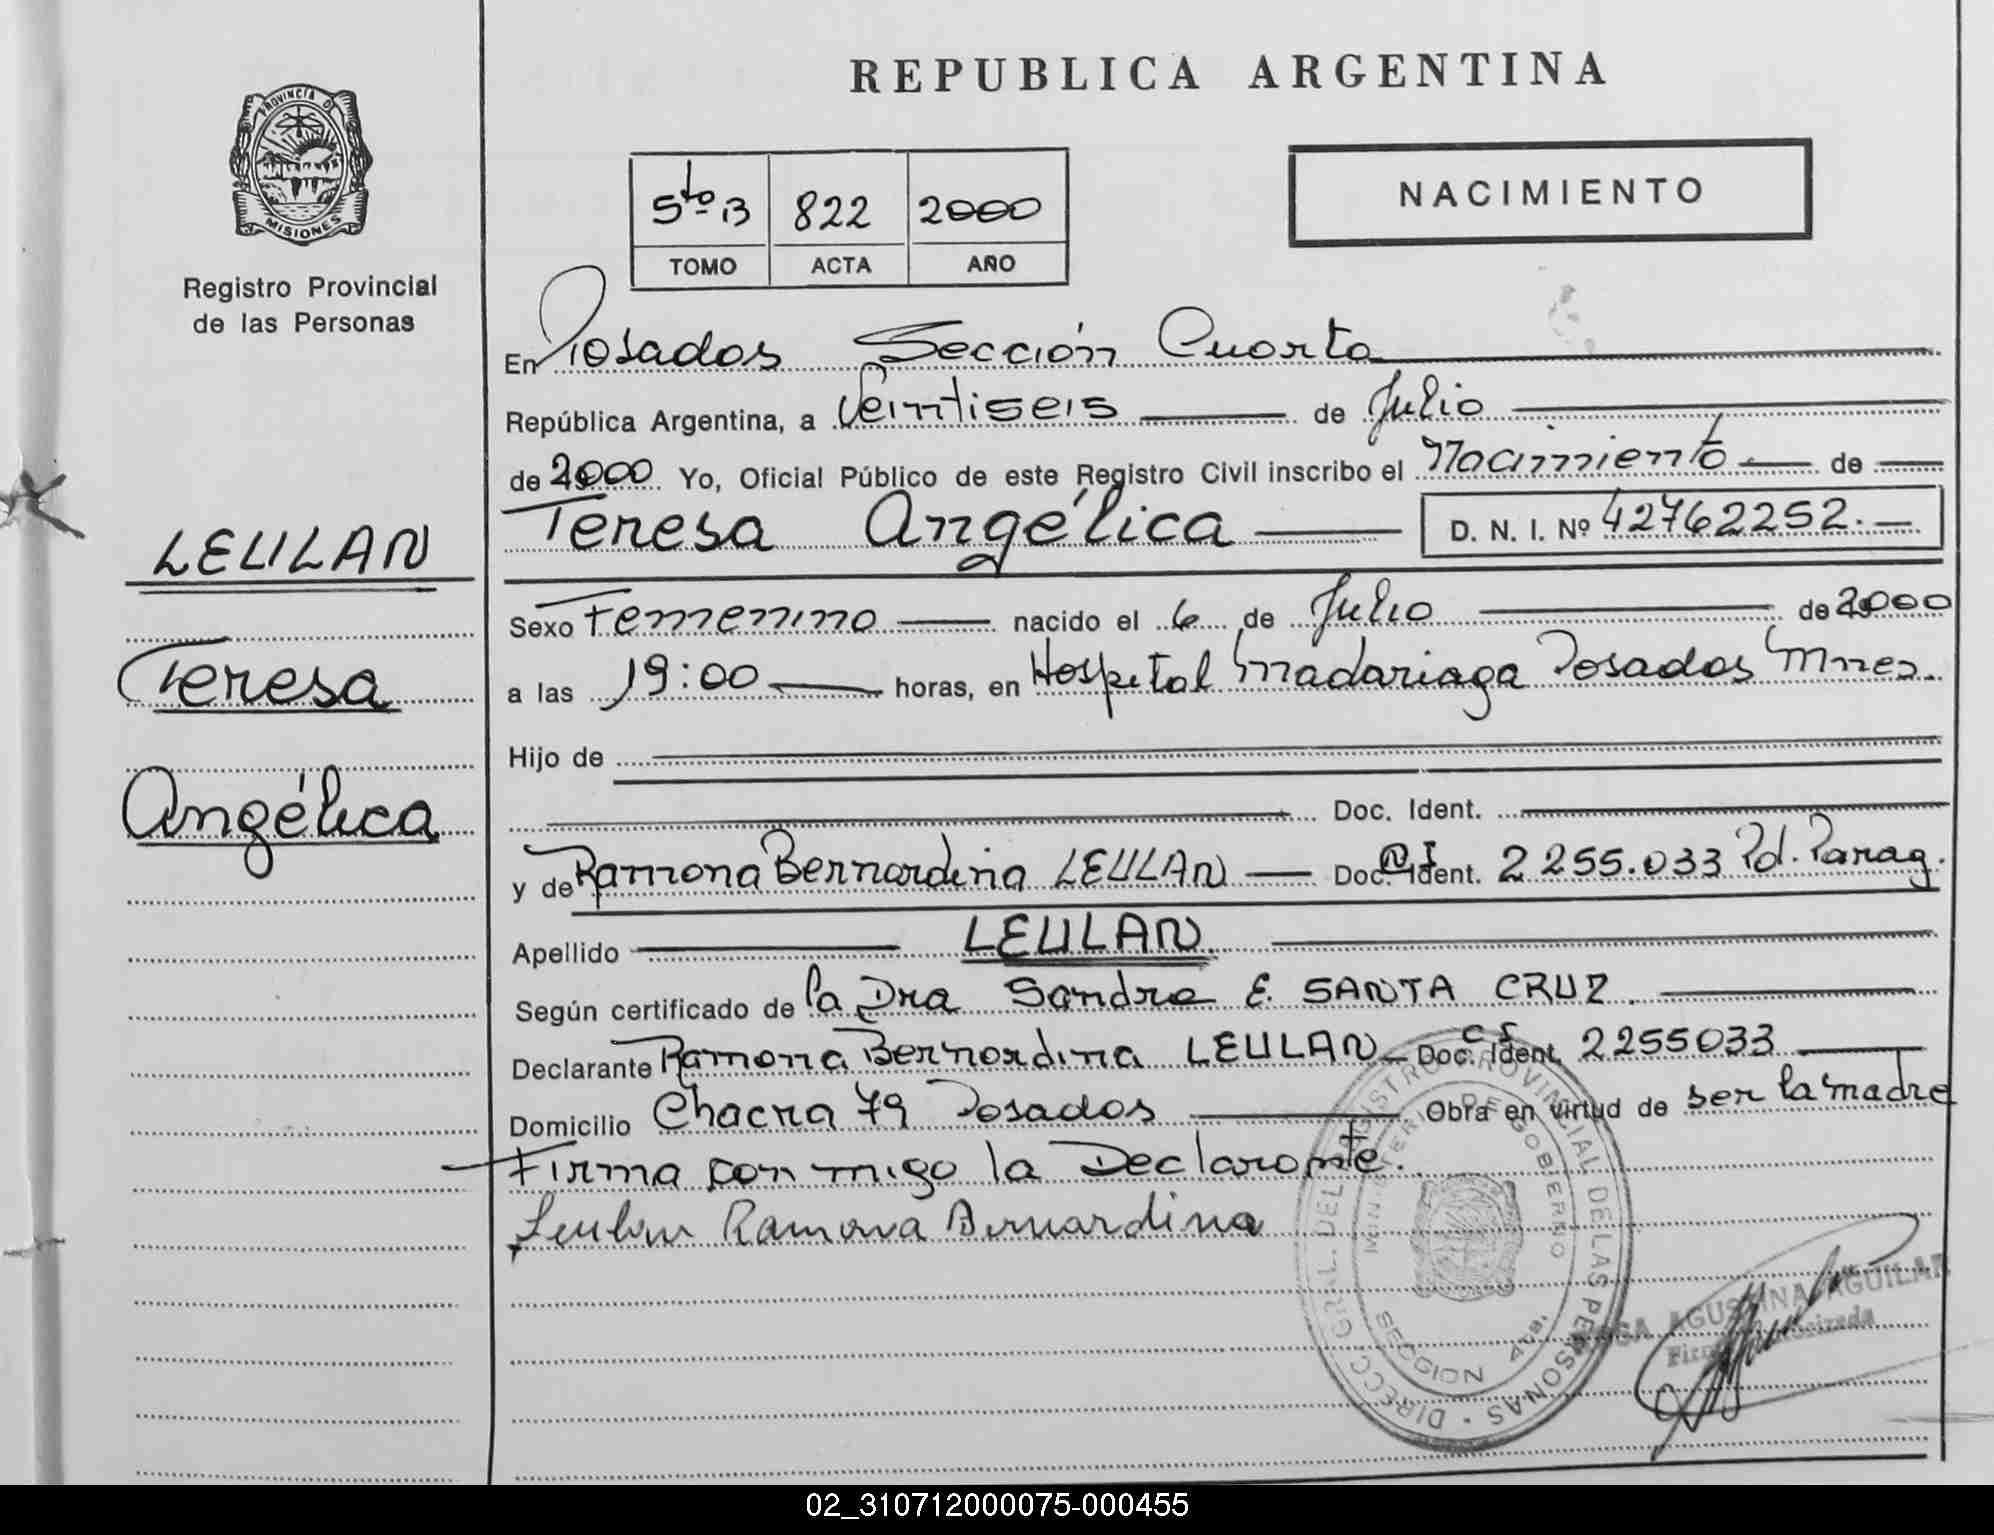 REPUBLICA ARGENTINA
PROVINCIA D MISIONES
Registro Provincial
de las Personas
5to B 822 2000
TOMO ACTA AÑO
NACIMIENTO
En Posadas Sección Cuarta
República Argentina, a Veintiseis de Julio
de 2000 Yo, Oficial Público de este Registro Civil inscribo el Nacimiento de
Teresa Angélica D. N. I. Nº 42762252.
LEULAN
Teresa
Angélica
Sexo Femenino nacido el 6 de Julio de 2000
a las 19:00 horas, en Hospital Madariaga Posadas Mnes.
Hijo de
Doc. Ident.
y de Ramona Bernardina LEULAN Doc. Ident. 2255.033 Pd. Parag.
Apellido LEULAN
Según certificado de la Dra Sandra E. SANTA CRUZ
Declarante Ramona Bernardina LEULAN Doc. Ident. C I 2255033
Domicilio Chacra 79 Posadas Obra en virtud de ser la madre
Firma con migo la Declarante.
Leulan Ramona Bernardina
DIRECC. GRAL. DEL REGISTRO PROVINCIAL DE LAS PERSONAS
MINISTERIO DE GOBIERNO
SECCION 4ta.
AGUSTINA AGUILAR
02_310712000075-000455